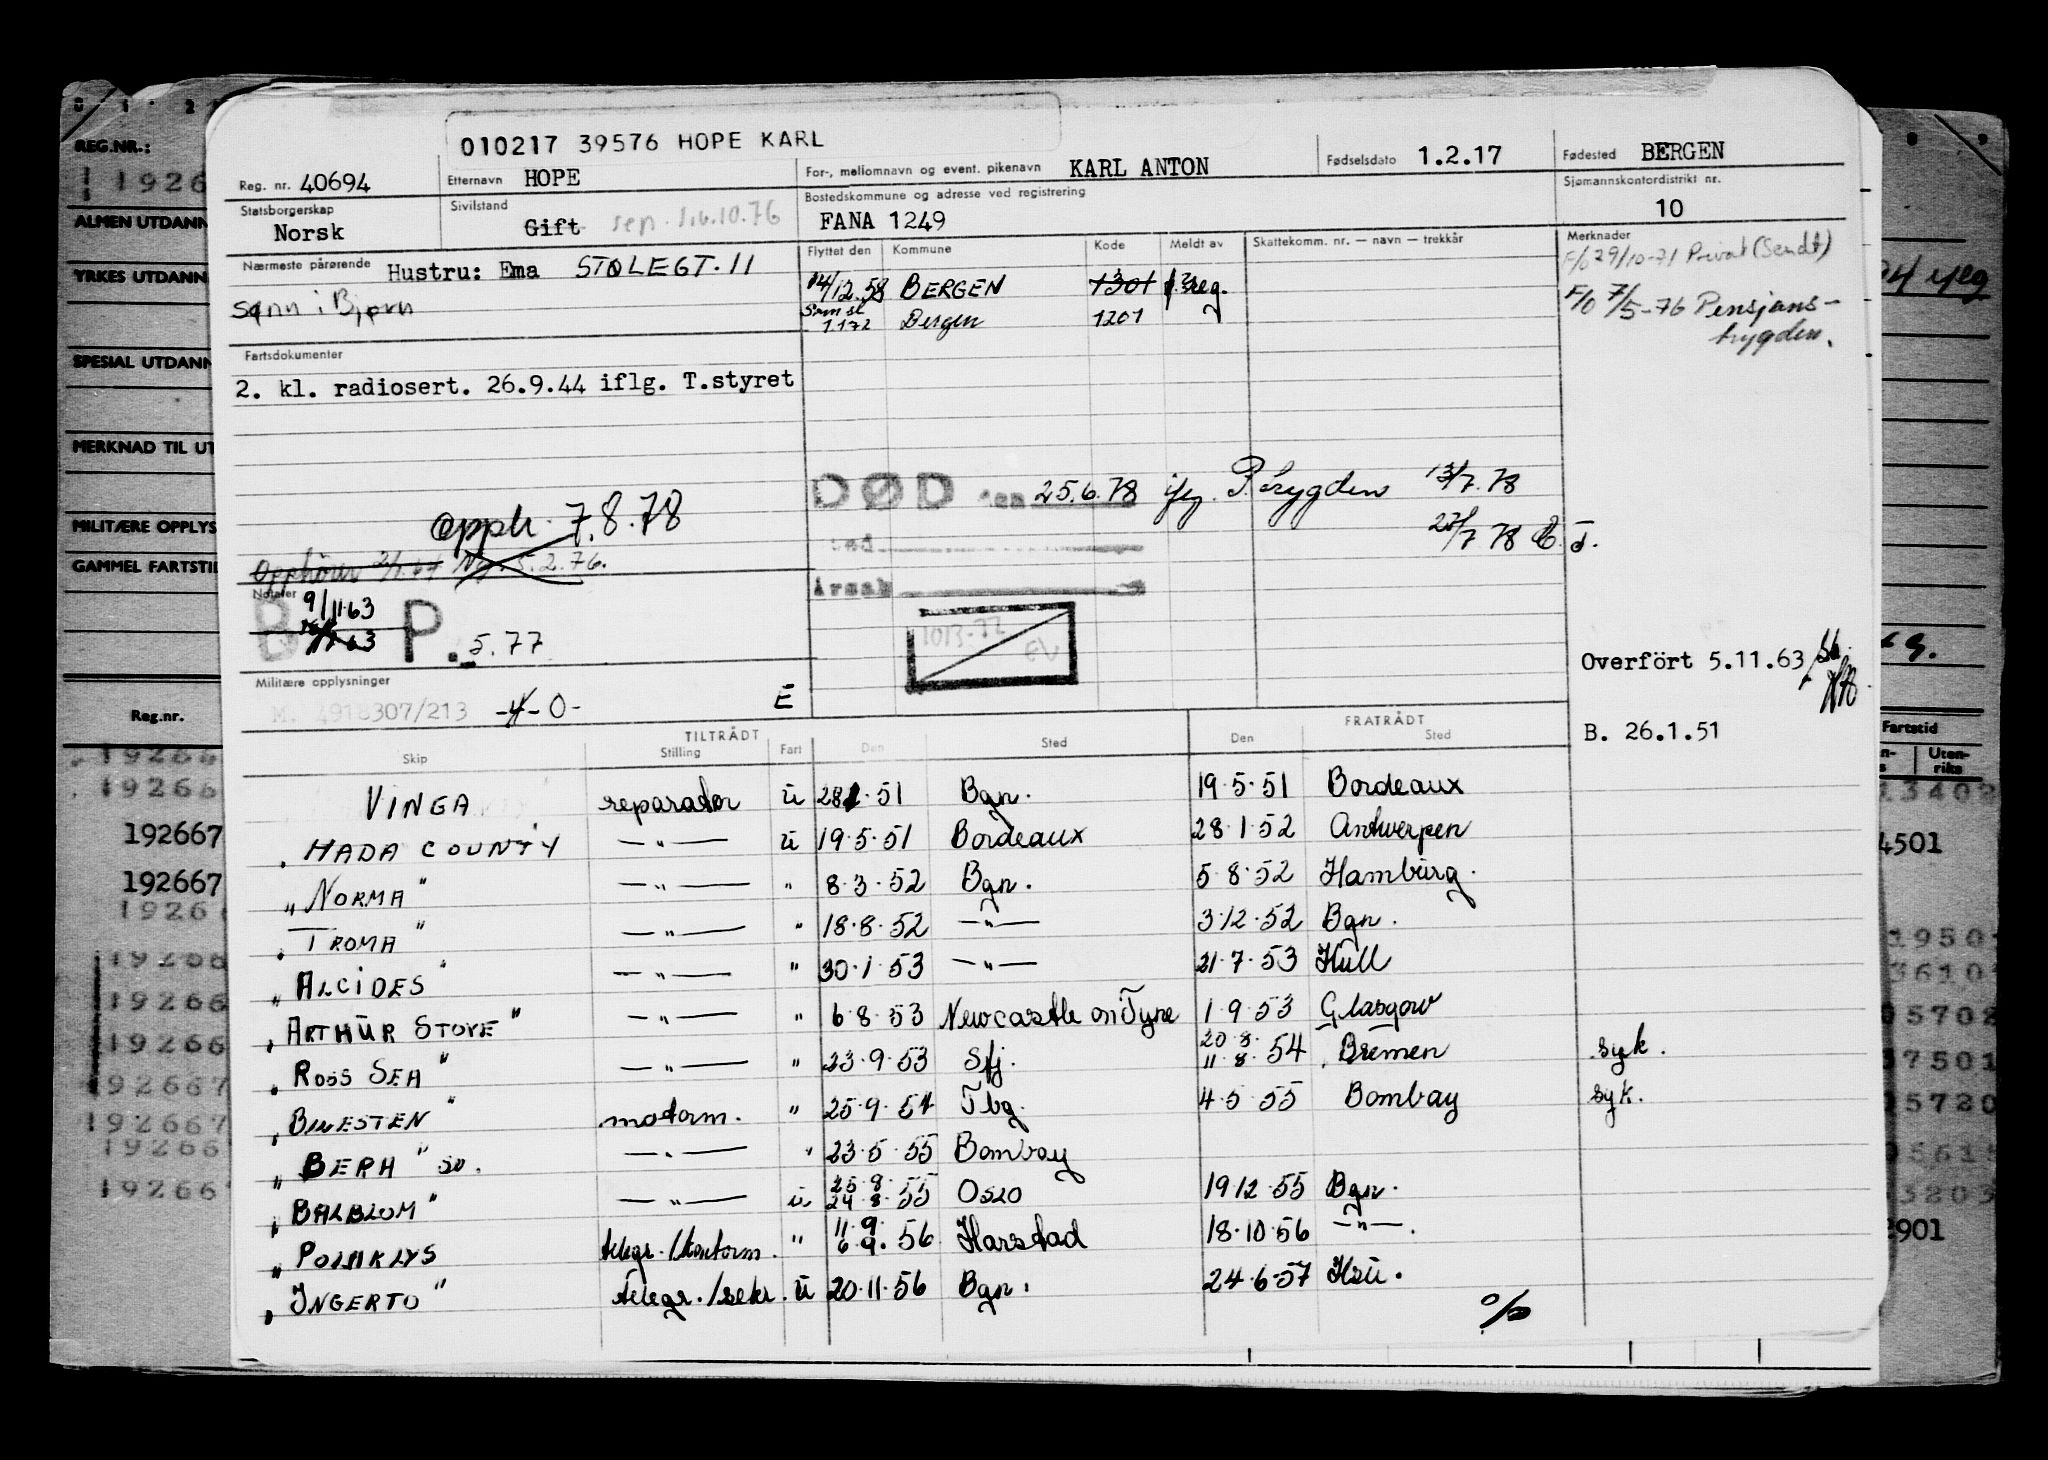 010217 39576 HOPE KARL
REG.NR.:
Reg. nr. 40694
Etternavn HOPE
For-, mellomnavn og event. pikenavn KARL ANTON
Fødselsdato 1.2.17
Fødested BERGEN
ALMEN UTDANN
Statsborgerskap Norsk
Sivilstand Gift sep. 1.6.10.76
Bostedskommune og adresse ved registrering FANA 1249
Sjømannskontordistrikt nr. 10
YRKES UTDANN
Nærmeste pårørende Hustru: Ema STØLEGT. 11
sønn : Bjørn
Flyttet den Kommune Kode Meldt av Skattekomm. nr. — navn — trekkår
14/12.58 BERGEN 1301 f. reg.
Smn sl 1.1 72 Bergen 1201
Merknader
F/o 29/10-71 Privat (Sendt)
F/o 7/5-76 Pensjons-
trygden.
SPESIAL UTDANN
Fartsdokumenter
2. kl. radiosert. 26.9.44 iflg. T.styret
MERKNAD TIL UT
DØD den 25.6.78 ifg. P.trygden 13/7.78
27/7 78 E.T.
sted
Årsak
1013-72
MILITÆRE OPPLYS
GAMMEL FARTSTI
Opph. 7.8.78
Opphører 2/1.64 Ny. 5.2.76.
Notater
B 9/11.63
P. 5.77
Overfört 5.11.63
Militære opplysninger
M. 4918307/213 -4-0- E
B. 26.1.51
Reg.nr.
Fartstid
Uten-
riks
TILTRÅDT FRATRÅDT
Skip Stilling Fart Den Sted Den Sted
VINGA reparatør u 28 1.51 Bgn. 19.5.51 Bordeaux
" HADA COUNTY —"— u 19.5.51 Bordeaux 28.1.52 Antwerpen
" NORMA " —"— " 8.3.52 Bgn. 5.8.52 Hamburg.
" TROMA " —"— " 18.8.52 —"— 3.12.52 Bgn.
" ALCIDES " —"— " 30.1.53 —"— 21.7.53 Hull
" ARTHUR STOVE " —"— " 6.8.53 Newcastle on Tyne 1.9.53 Glasgow
" ROSS SEA " —"— " 23.9.53 Sfj. 20.8. 11.8.54 Bremen syk.
" BINESTEN " motorm. " 25.9.54 Tbg. 4.5 55 Bombay syk.
" BERH " SD. —"— " 23.5 55 Bombay
" BALBLOM " —"— u. 25.8.55 24.8.55 Oslo 19.12.55 Bgn.
" POLARLYS telegr./kontorm. " 11.9. 6.9.56 Harstad 18.10.56 —"—.
" INGERTO " telegr./sekr. u 20.11.56 Bgn. 24.6.57 Hsu.
%
192667
192667
4501
2901